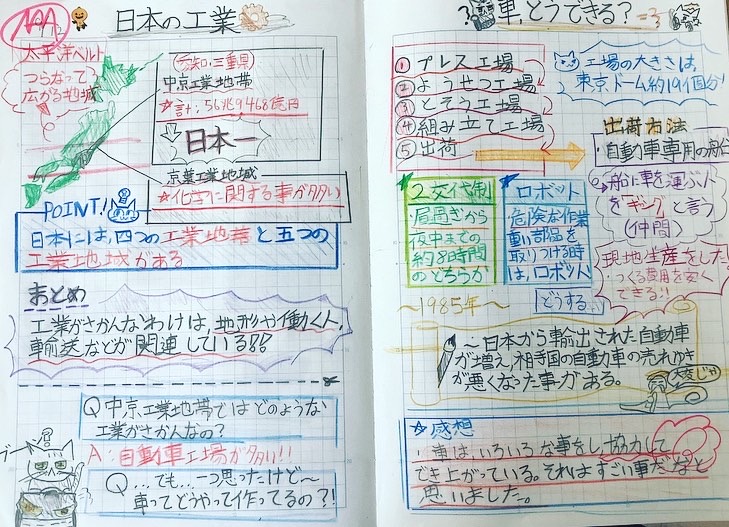 AA
日本の工業
太平洋ベルト
つらなって
広がる地域
(愛知・三重県)
中京工業地帯
☆計、56兆9468億円
日本一
京葉工業地域
☆化学に関する事が多い
POINT!
日本には、四つの工業地帯と五つの
工業地域がある
まとめ
工業がさかんなわけは、地形や働く人、
輸送などが関連している!!
Q 中京工業地帯ではどのような
工業がさかんなの?
A:自動車工場が多い!!
Q…でも…一つ思ったけど〜
車ってどうやって作ってるの?!
車、どうできる?
① プレス工場
② ようせつ工場
③ とそう工場
④ 組み立て工場
⑤ 出荷
工場の大きさは、
東京ドーム約19個分!
出荷方法
・自動車専用の船
船に車を運ぶ人
を"ギャング"と言う
(仲間)
現地生産をした!
・つくる費用を安く
できる!!
2交代制
昼過ぎから
夜中までの
約8時間
のどちらか
ロボット
危険な作業
重い部品を
取りつける時
は、ロボット
どうする
〜1985年〜
〜日本から輸出された自動車
が増え、相手国の自動車の売れゆき
が悪くなった事がある。
大変じゃ
☆感想
車は、いろいろな事をし、協力して
でき上がっている。それはすごい事だなと
思いました。